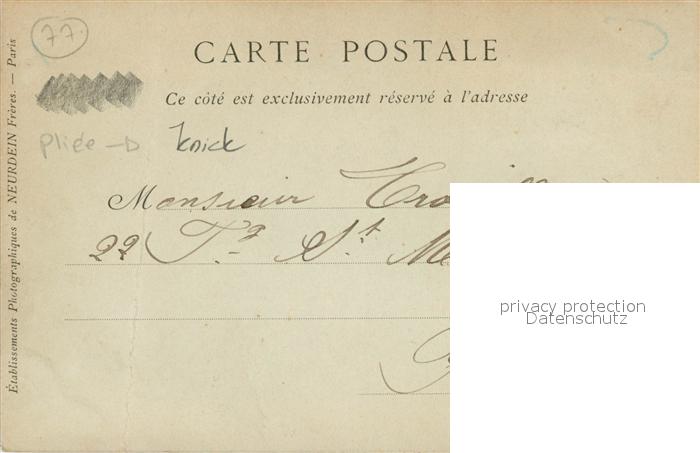 77.
CARTE POSTALE
Ce côté est exclusivement réservé à l'adresse
pliée – D knick
Monsieur
22 F.g St
privacy protection
Datenschutz
Établissements Photographiques de NEURDEIN Frères. — Paris